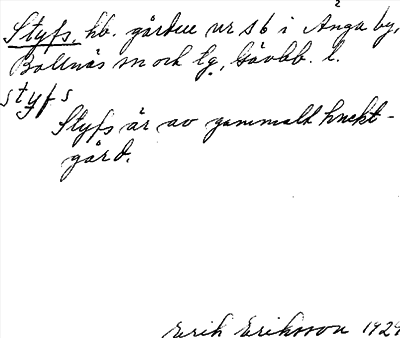 Styfs, hb. gården nr 16 i Änga by,
Bollnäs sn och tg, Gävbb. l.
styfs
Styfs är av gammalt knekt-
gård.
Erik Eriksson 1929